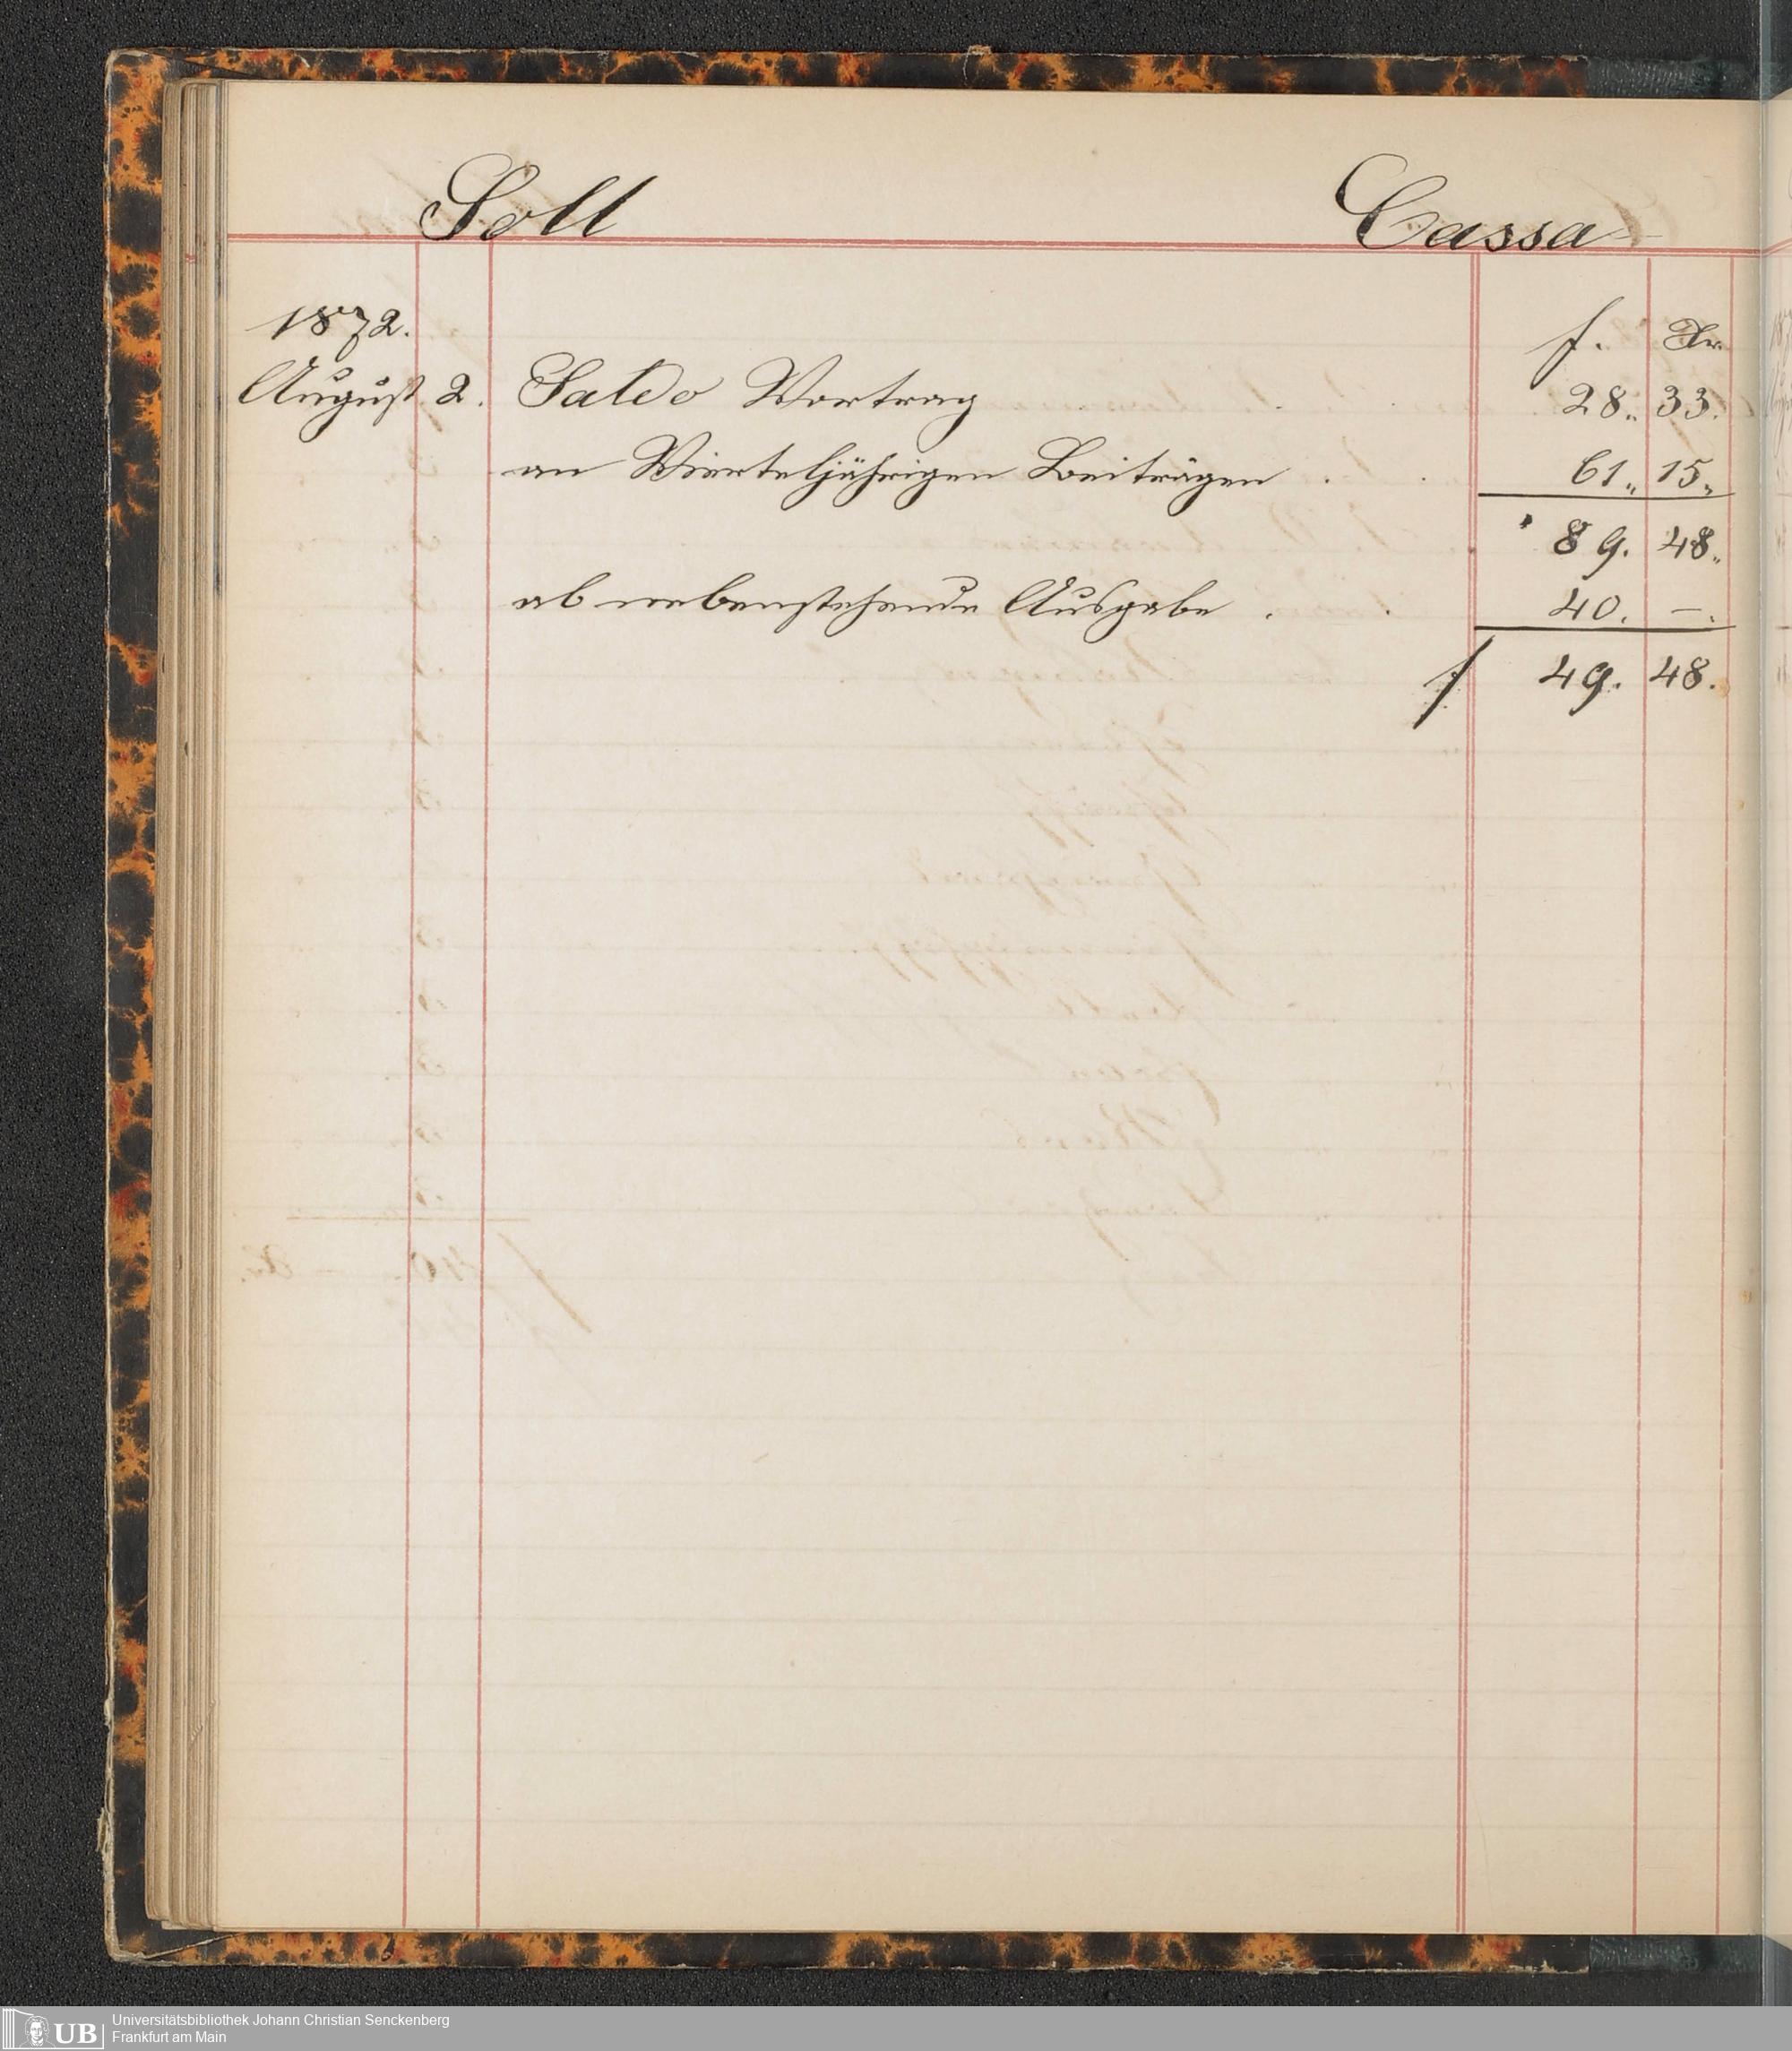 Soll Cassa
1872. f. Xr.
August 2. Saldo Vortrag . . 28„ 33.
an Vierteljährigen Beiträgen . . 61„ 15„
89. 48„
ab nebenstehende Ausgabe . . 40. —.
f 49. 48.
UB
Universitätsbibliothek Johann Christian Senckenberg
Frankfurt am Main